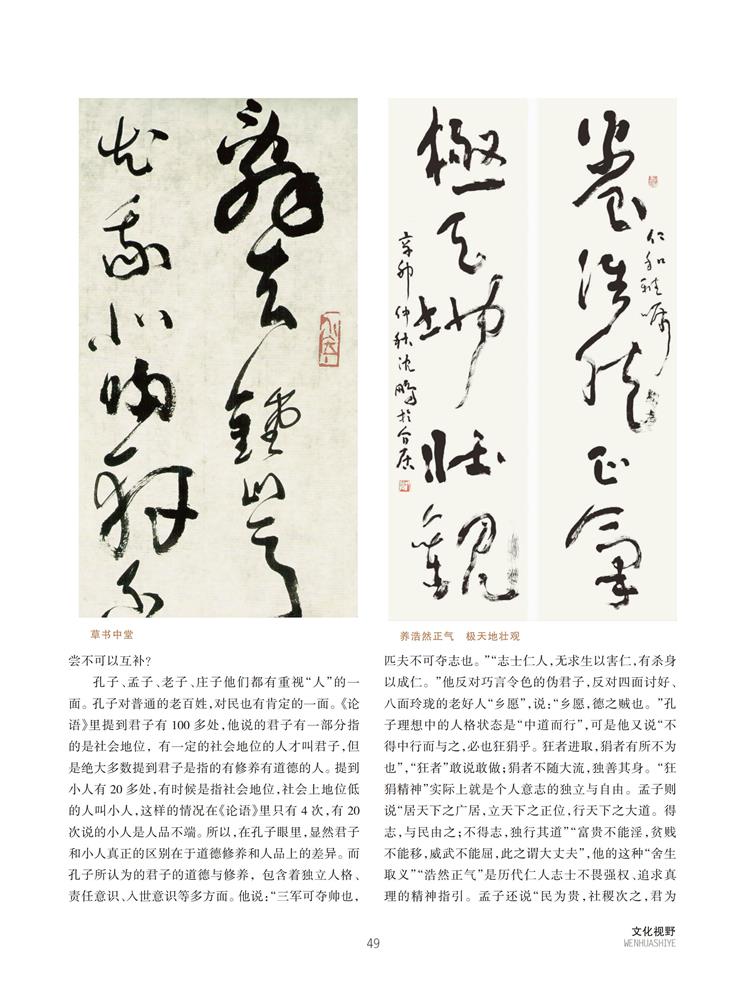 養浩然正氣
極天地壯觀
辛卯仲秋沈鵬於介居
草书中堂
养浩然正气　极天地壮观
尝不可以互补？
孔子、孟子、老子、庄子他们都有重视“人”的一
面。孔子对普通的老百姓，对民也有肯定的一面。《论
语》里提到君子有 100 多处，他说的君子有一部分指
的是社会地位，有一定的社会地位的人才叫君子，但
是绝大多数提到君子是指的有修养有道德的人。提到
小人有 20 多处，有时候是指社会地位，社会上地位低
的人叫小人，这样的情况在《论语》里只有 4 次，有 20
次说的小人是人品不端。所以，在孔子眼里，显然君子
和小人真正的区别在于道德修养和人品上的差异。而
孔子所认为的君子的道德与修养，包含着独立人格、
责任意识、入世意识等多方面。他说：“三军可夺帅也，
匹夫不可夺志也。”“志士仁人，无求生以害仁，有杀身
以成仁。”他反对巧言令色的伪君子，反对四面讨好、
八面玲珑的老好人“乡愿”，说：“乡愿，德之贼也。”孔
子理想中的人格状态是“中道而行”，可是他又说“不
得中行而与之，必也狂狷乎。狂者进取，狷者有所不为
也”，“狂者”敢说敢做；狷者不随大流，独善其身。“狂
狷精神”实际上就是个人意志的独立与自由。孟子则
说“居天下之广居，立天下之正位，行天下之大道。得
志，与民由之；不得志，独行其道”“富贵不能淫，贫贱
不能移，威武不能屈，此之谓大丈夫”，他的这种“舍生
取义”“浩然正气”是历代仁人志士不畏强权、追求真
理的精神指引。孟子还说“民为贵，社稷次之，君为
49
文化视野
WENHUASHIYE